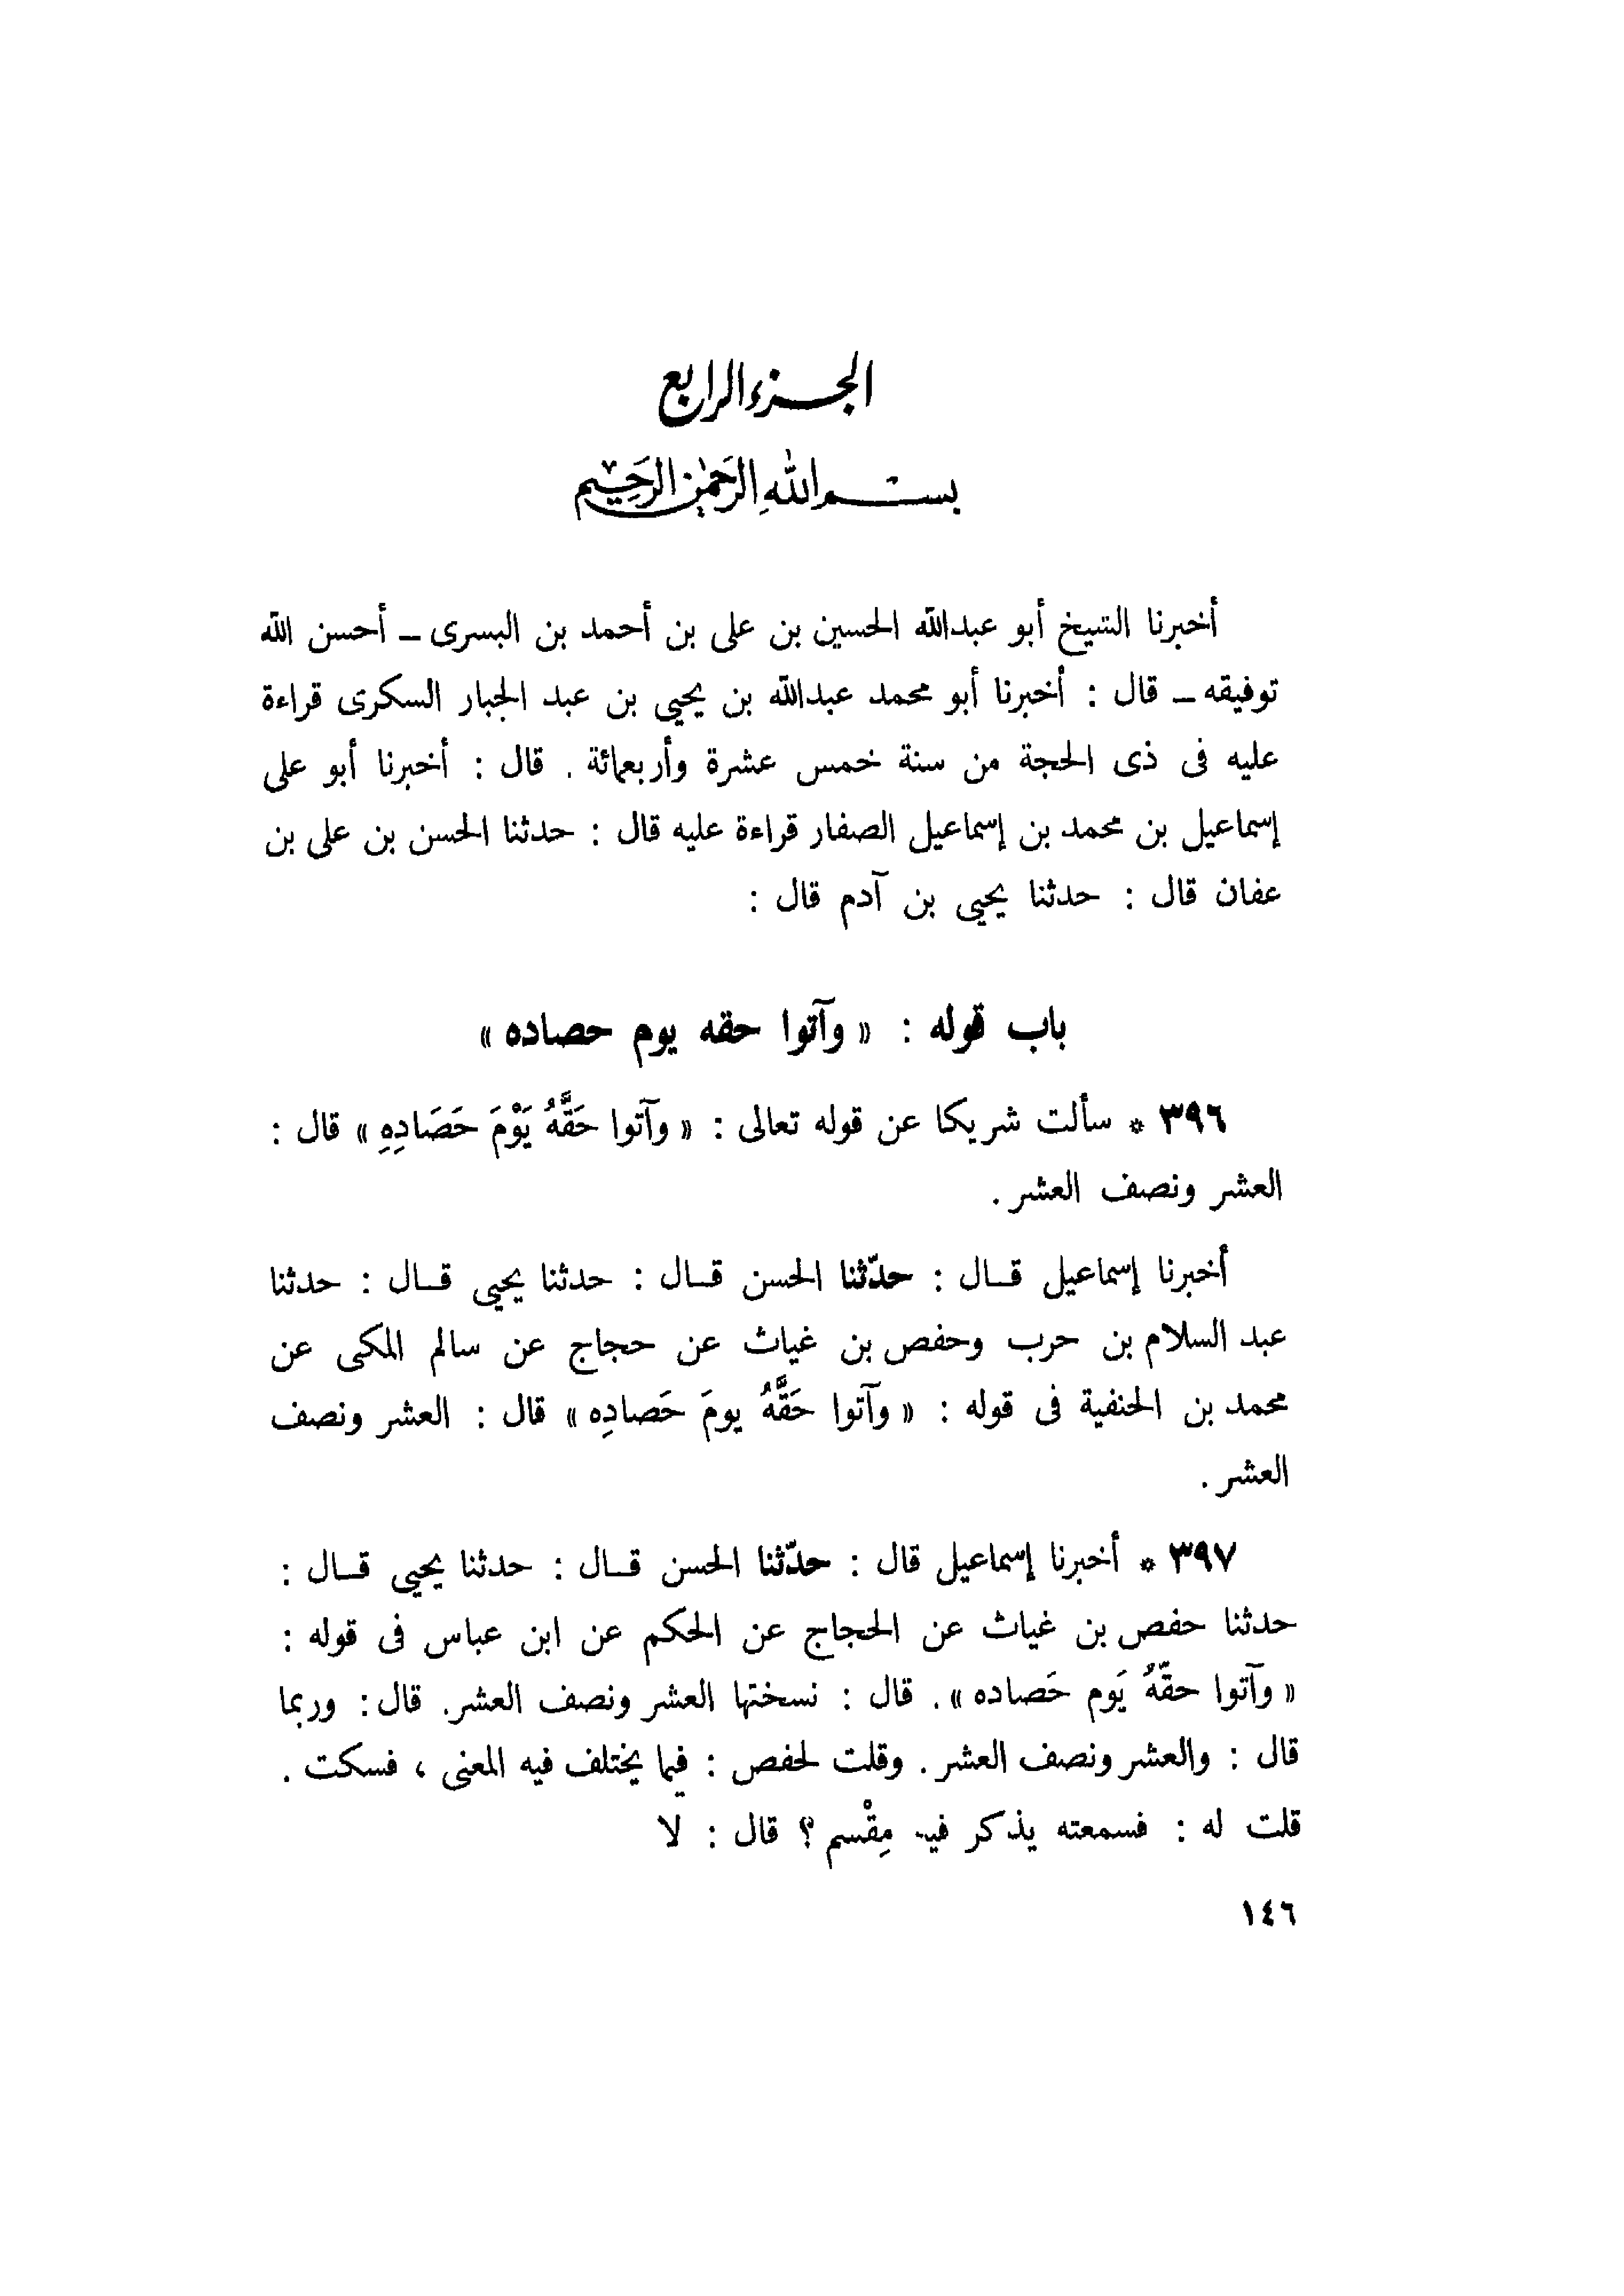 الجزء الرابع
بسم الله الرحمٰن الرحيم
أخبرنا الشيخ أبو عبدالله الحسين بن على بن أحمد بن البسرى ــ أحسن الله
توفيقه ــ قال : أخبرنا أبو محمد عبدالله بن يحيى بن عبد الجبار السكرى قراءة
عليه فى ذى الحجة من سنة خمس عشرة وأربعمائة . قال : أخبرنا أبو على
إسماعيل بن محمد بن إسماعيل الصفار قراءة عليه قال : حدثنا الحسن بن على بن
عفان قال : حدثنا يحيى بن آدم قال :
باب قوله : « وآتوا حقه يوم حصاده »
٣٩٦ * سألت شريكا عن قوله تعالى : « وآتوا حَقَّهُ يَوْمَ حَصَادِهِ » قال :
العشر ونصف العشر .
أخبرنا إسماعيل قـال : حدّثنا الحسن قـال : حدثنا يحيى قـال : حدثنا
عبد السلام بن حرب وحفص بن غياث عن حجاج عن سالم المكى عن
محمد بن الحنفية فى قوله : « وآتوا حَقَّهُ يومَ حَصادِه » قال : العشر ونصف
العشر .
٣٩٧ * أخبرنا إسماعيل قال : حدّثنا الحسن قـال : حدثنا يحيى قـال :
حدثنا حفص بن غياث عن الحجاج عن الحكم عن ابن عباس فى قوله :
« وآتوا حقّهُ يَوم حَصاده » . قال : نسختها العشر ونصف العشر. قال : وربما
قال : والعشر ونصف العشر . وقلت لحفص : فيما يختلف فيه المعنى ، فسكت .
قلت له : فسمعته يذكر فيه مِقْسم ؟ قال : لا
١٤٦